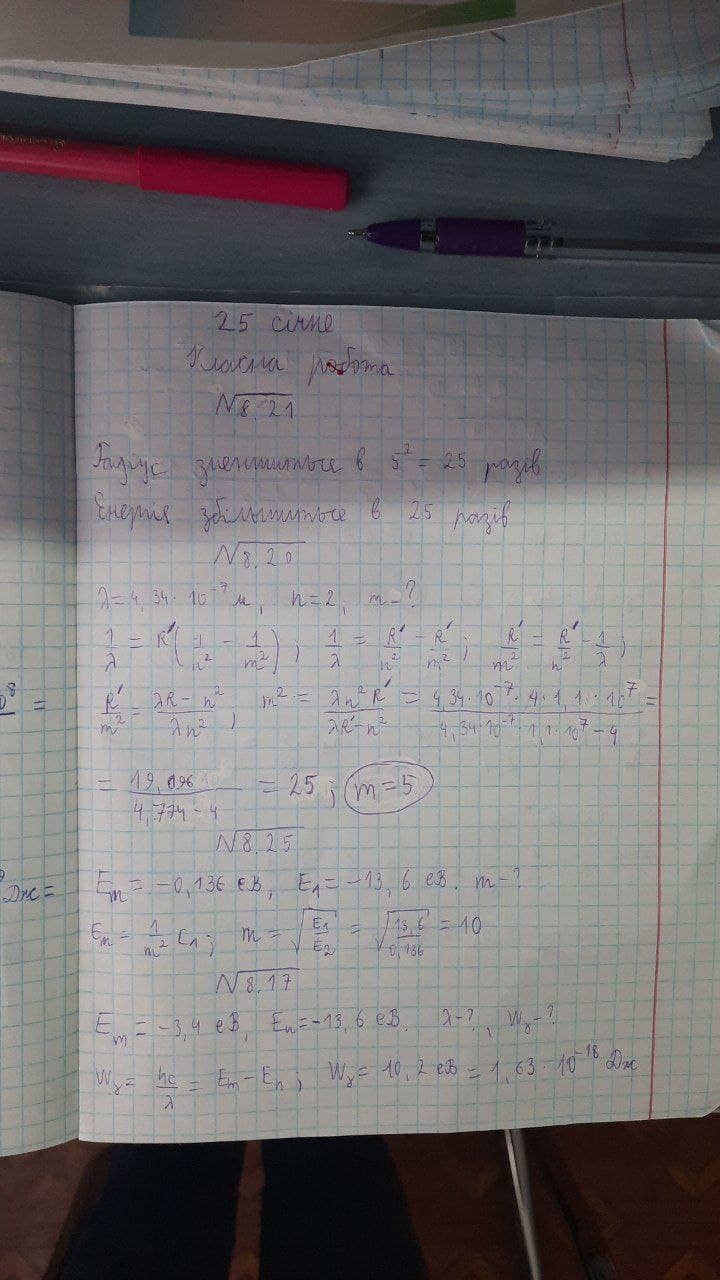 25 січня
Класна робота
№8.21
Радіус зменшиться в 5² = 25 разів
Енергія збільшиться в 25 разів
№8.20
λ = 4,34·10⁻⁷ м, n = 2, m - ?
1/λ = R'(1/n² - 1/m²); 1/λ = R'/n² - R'/m²; R'/m² = R'/n² - 1/λ;
R'/m² = λR - n²/λn², m² = λn²R'/λR' - n² = 4,34·10⁻⁷·4·1,1·10⁷/4,34·10⁻⁷·1,1·10⁷ - 4 =
= 19,096/4,774 - 4 = 25; m = 5
№8.25
Em = -0,136 еВ, E₁ = -13,6 еВ. m - ?
Em = 1/m² E₁; m = √E₁/E₂ = √13,6/0,136 = 10
№8.17
Em = -3,4 еВ, En = -13,6 еВ. λ - ?, Wγ - ?
Wγ = hc/λ = Em - En; Wγ = 10,2 еВ = 1,63·10⁻¹⁸ Дж
0⁸ =
Дж =